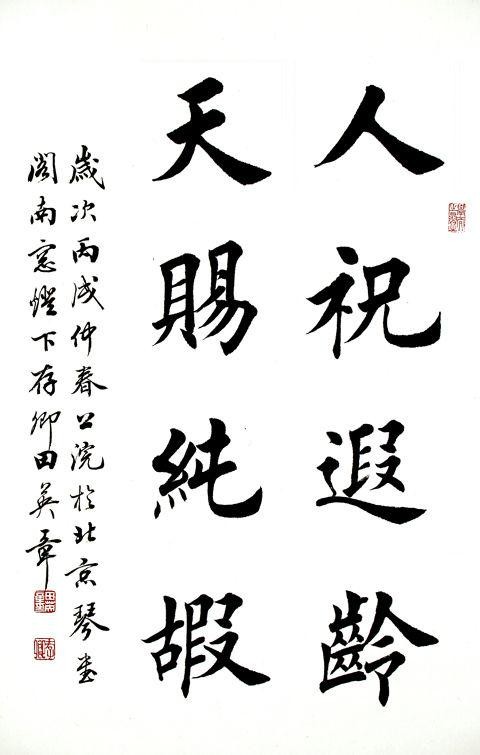 人祝遐齡
天賜純嘏
歲次丙戌仲春上浣於北京琴書
閣南窓燈下存卿田英章